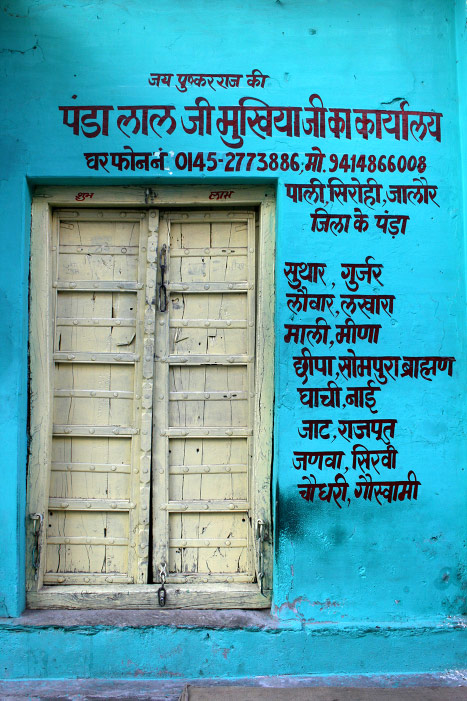 जय पुष्करराज की
पंडा लाल जी मुखिया जी का कार्यालय
घर फोन नं. 0145-2773886, मो. 9414866008
शुभ लाभ
पाली, सिरोही, जालौर
जिला के पंड़ा
सुथार, गुर्जर
लौवार, लखारा
माली, मीणा
छीपा, सोमपुरा ब्राह्मण
घाची, नाई
जाट, राजपूत
जणवा, सिरवी
चौधरी, गौस्वामी